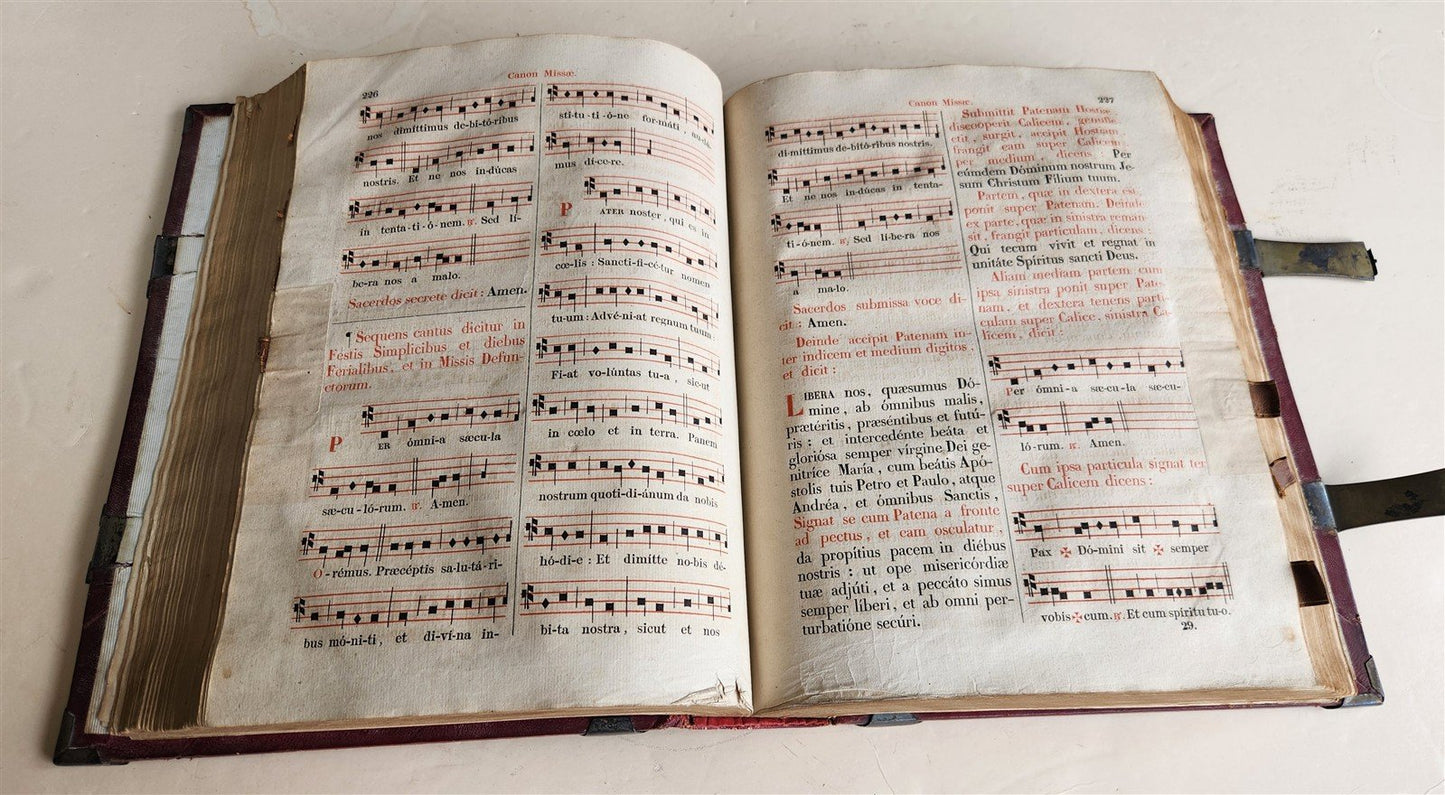 Canon Missæ.
226
nos dimíttimus de-bi-tó-ribus
nostris. Et ne nos in-dúcas
in tenta-ti-ó-nem. ℟. Sed lí-
be-ra nos a malo.
Sacerdos secrete dicit : Amen.
¶ Sequens cantus dicitur in
Festis Simplicibus et diebus
Ferialibus, et in Missis Defun-
ctorum.
PER ómni-a sæcu-la
sæ-cu-ló-rum. ℟. A-men.
O-rémus. Præcéptis sa-lu-tá-ri-
bus mó-ni-ti, et di-ví-na in-
sti-tu-ti-ó-ne for-máti, au-dé-
mus dí-ce-re.
PATER noster, qui es in
cœ-lis : Sancti-fi-cé-tur nomen
tu-um : Advé-ni-at regnum tuum :
Fi-at vo-lúntas tu-a, sic-ut
in cœlo et in terra. Panem
nostrum quoti-di-ánum da nobis
hó-di-e : Et dimitte no-bis dé-
bi-ta nostra, sicut et nos
Canon Missæ.
227
di-míttimus de-bitó-ribus nostris.
Et ne nos in-dúcas in tenta-
ti-ó-nem. ℟. Sed lí-be-ra nos
a ma-lo.
Sacerdos submissa voce di-
cit : Amen.
Deinde accipit Patenam in-
ter indicem et medium digitos,
et dicit :
LIBERA nos, quæsumus Dó-
mine, ab ómnibus malis,
prætéritis, præséntibus et futú-
ris : et intercedénte beáta et
gloriósa semper vírgine Dei ge-
nitríce María, cum beátis Apó-
stolis tuis Petro et Paulo, atque
Andréa, et ómnibus Sanctis,
Signat se cum Patena a fronte
ad pectus, et eam osculatur,
da propítius pacem in diébus
nostris : ut ope misericórdiæ
tuæ adjúti, et a peccáto simus
semper líberi, et ab omni per-
turbatióne secúri.
Submittit Patenam Hostiæ,
discooperit Calicem, genufle-
ctit, surgit, accipit Hostiam,
frangit eam super Calicem
per medium, dicens : Per
eúmdem Dóminum nostrum Je-
sum Christum Fílium tuum.
Partem, quæ in dextera est,
ponit super Patenam. Deinde
ex parte, quæ in sinistra reman-
sit, frangit particulam, dicens :
Qui tecum vivit et regnat in
unitáte Spíritus sancti Deus.
Aliam mediam partem cum
ipsa sinistra ponit super Pate-
nam, et dextera tenens parti-
culam super Calice, sinistra Ca-
licem, dicit :
Per ómni-a sæ-cu-la sæ-cu-
ló-rum. ℟. Amen.
Cum ipsa particula signat ter
super Calicem dicens :
Pax ✠ Dó-mini sit ✠ semper
vobis ✠ cum. ℟. Et cum spíritu tu-o.
29.